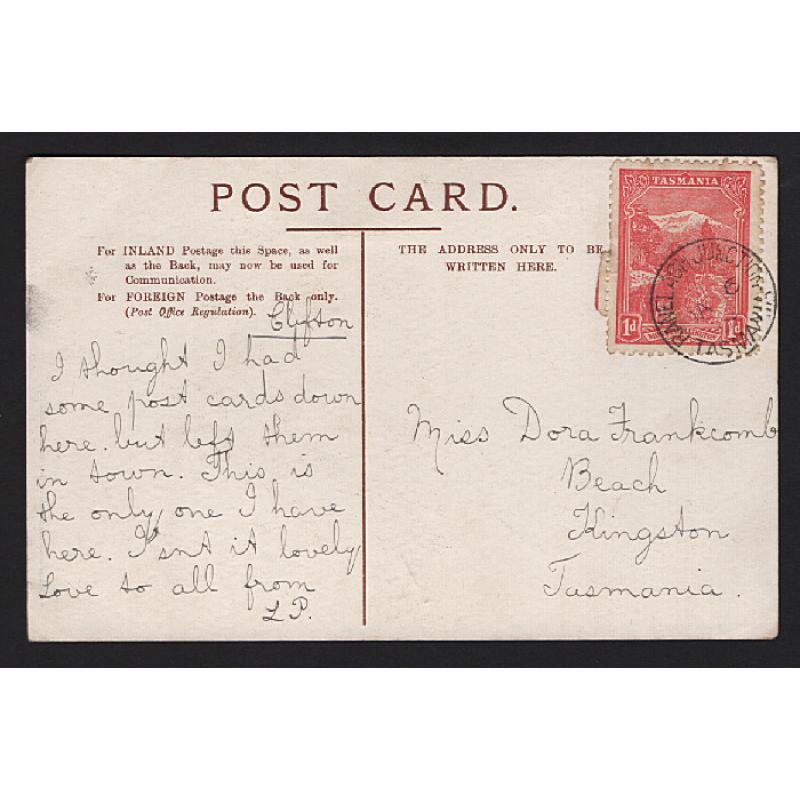 POST CARD.
For INLAND Postage this Space, as well
as the Back, may now be used for
Communication.
For FOREIGN Postage the Back only.
(Post Office Regulation).
THE ADDRESS ONLY TO BE
WRITTEN HERE.
Clifton
I thought I had
some post cards down
here. but left them
in town. This is
the only one I have
here. Isnt it lovely
Love to all from
L.P.
Miss Dora Frankcomb
Beach
Kingston
Tasmania.
TASMANIA
1d 1d
RANELAGH JUNCTION
TASMANIA